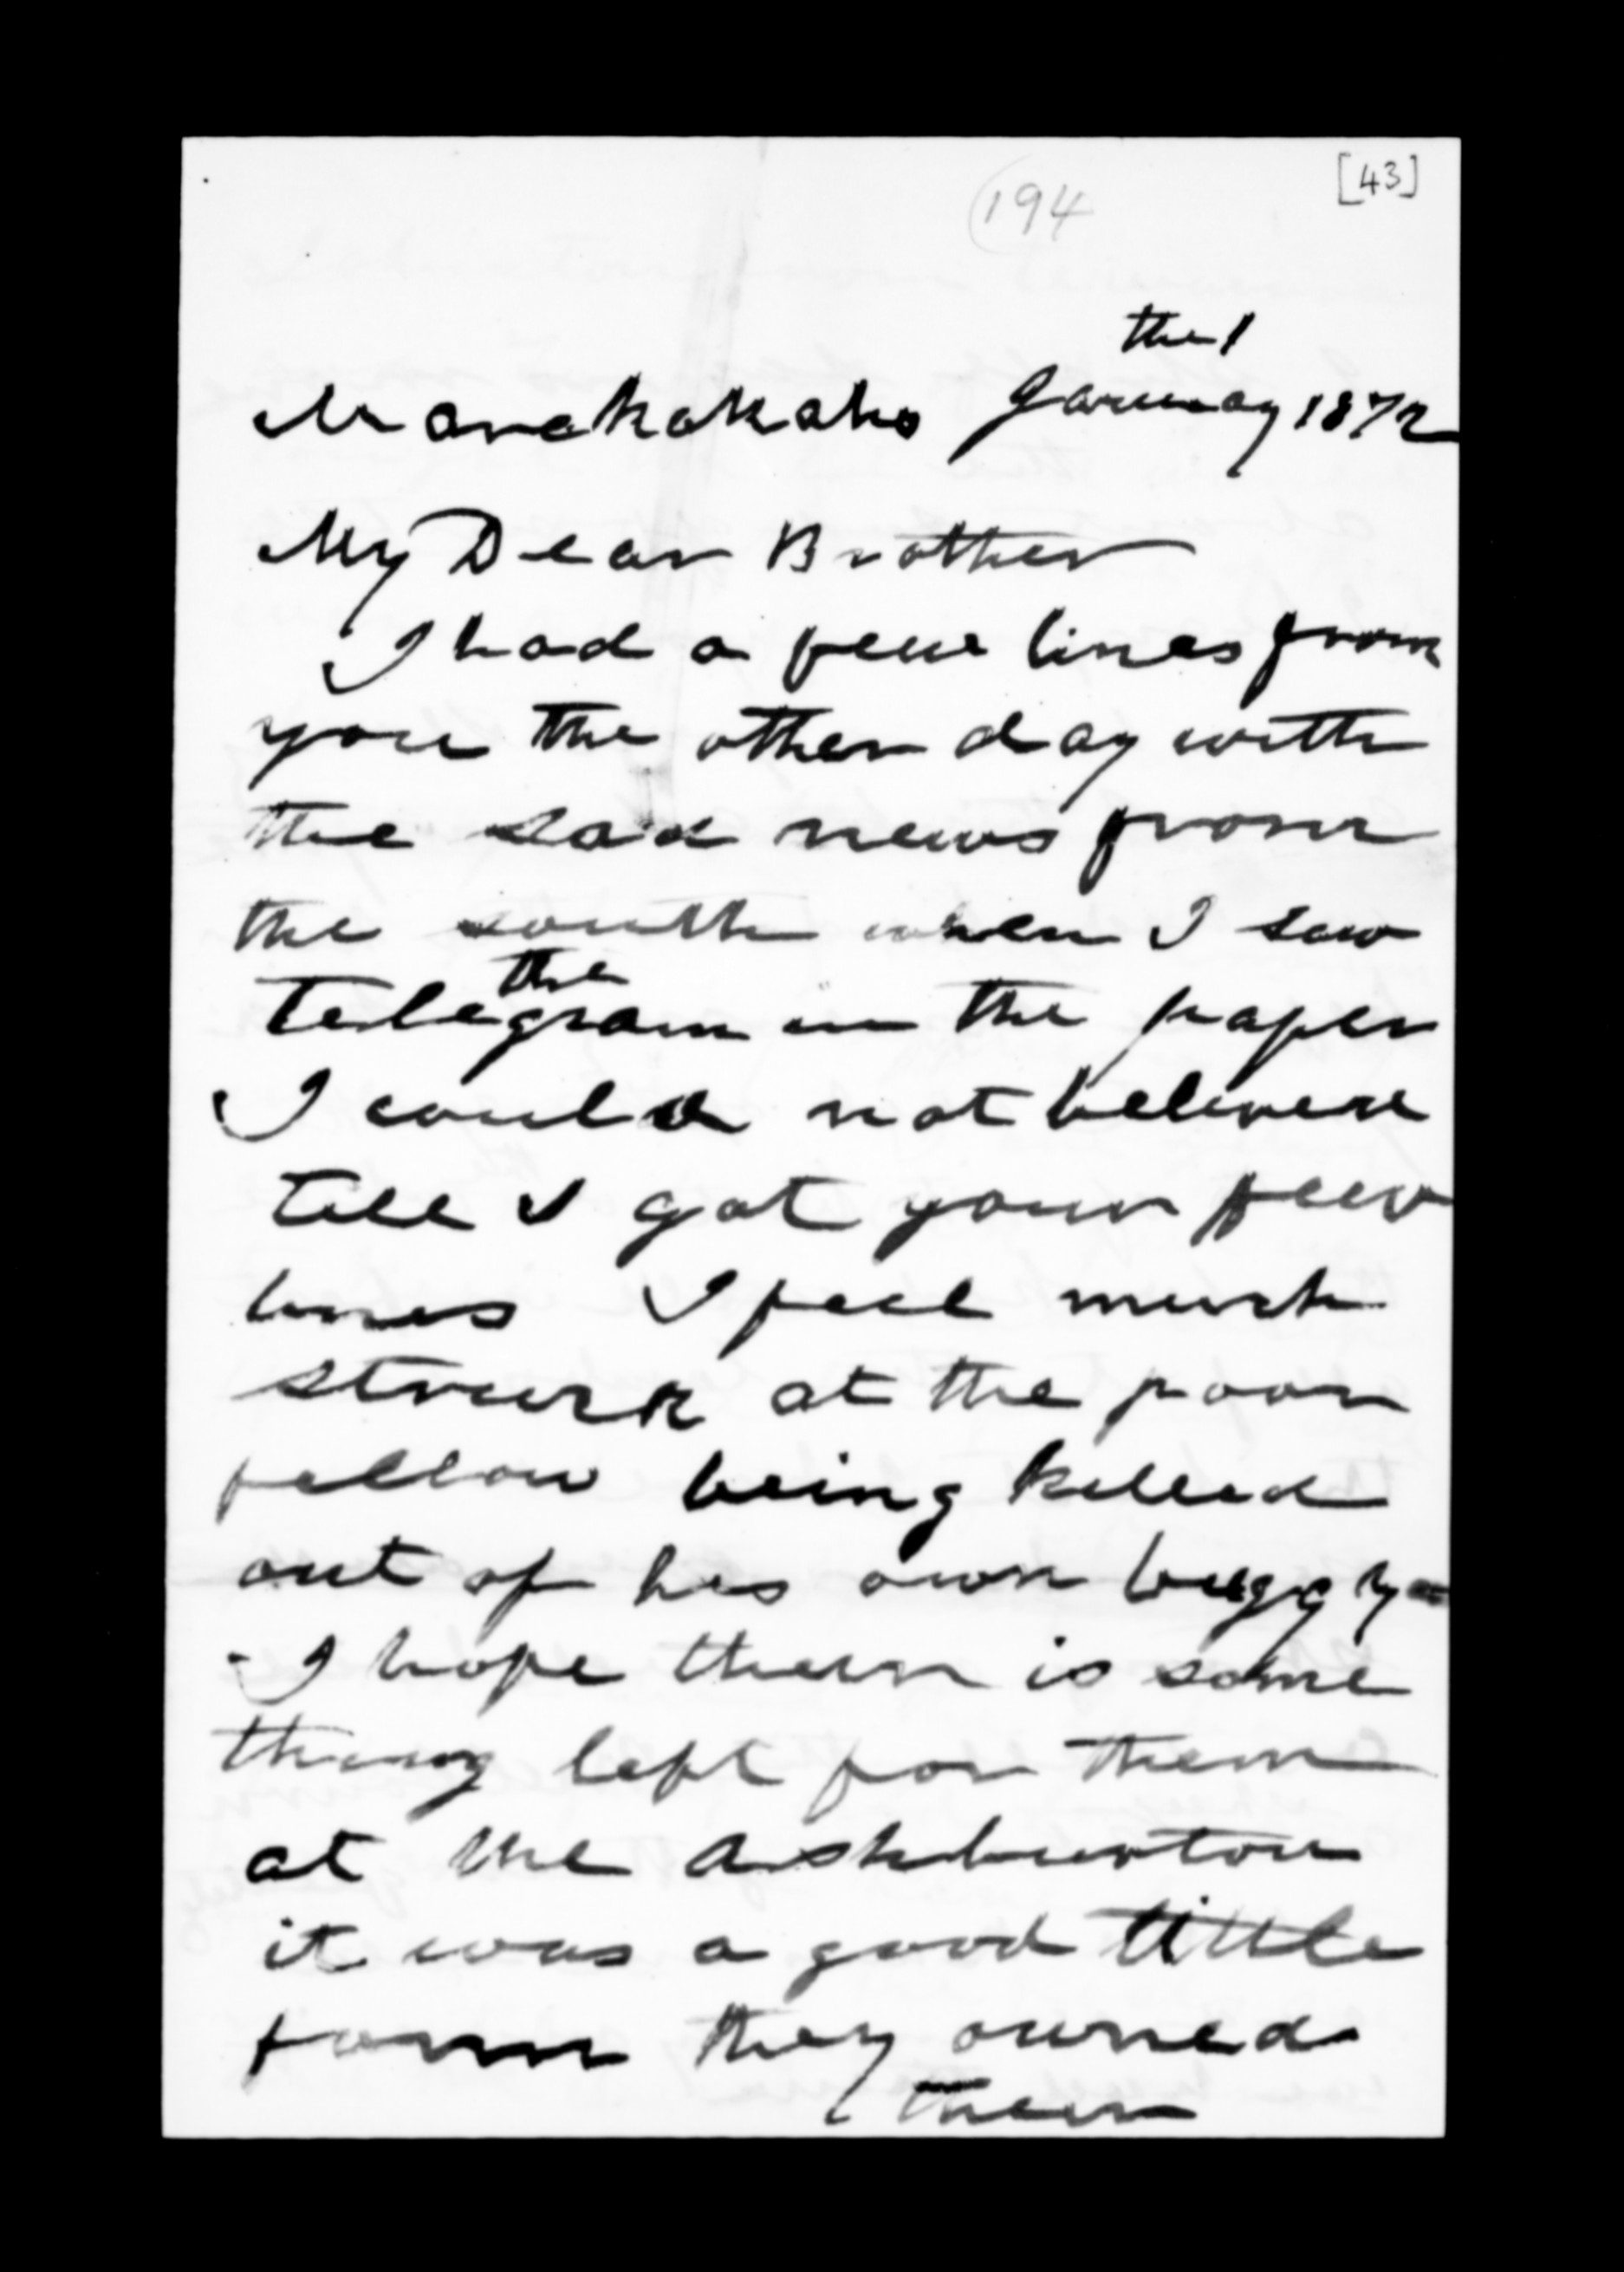 [43]
194
the 1
Marakakaho January 1872
My Dear Brother
I had a few lines from
you the other day with
the sad news from
the south when I saw
the
telegram in the paper
I could not beliveve
till I got your few
lines I feel much
struck at the poor
fellow being killed
out of his own buggy
I hope their is some
thing left for them
at the Ashburton
it was a good little
farm they owned
their